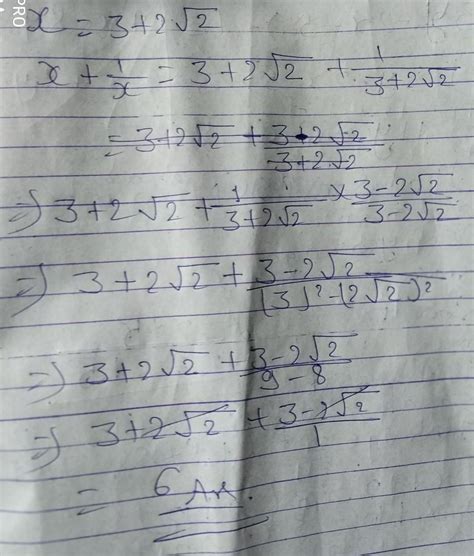 PRO
x = 3+2√2
x + 1/x = 3+2√2 + 1/(3+2√2)
= 3+2√2 + (3-2√2)/(3+2√2)
⇒) 3+2√2 + 1/(3+2√2) × (3-2√2)/(3-2√2)
⇒) 3+2√2 + (3-2√2)/((3)²-(2√2)²)
⇒) 3+2√2 + (3-2√2)/(9-8)
⇒) 3+2√2 + (3-2√2)/1
= 6 Ans.